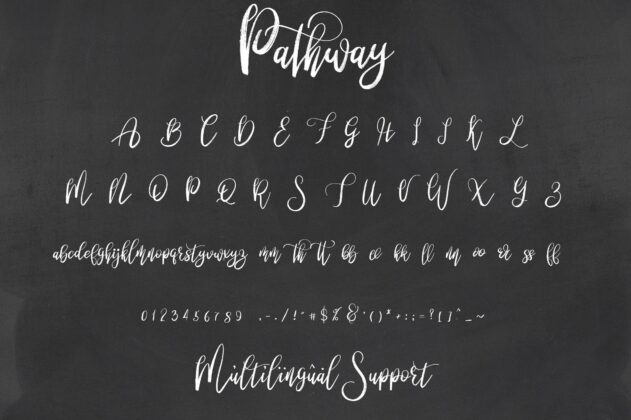 Pathway
A B C D E F G H I J K L
M N O P Q R S T U V W X Y Z
abcdefghijklmnopqrstuvwxyz mm th tt bb ee kk ll nn oo rr ss ff
0123456789 .-,/!"#$%&'()*+:;=?[]^_~
Múltilingûàl Support